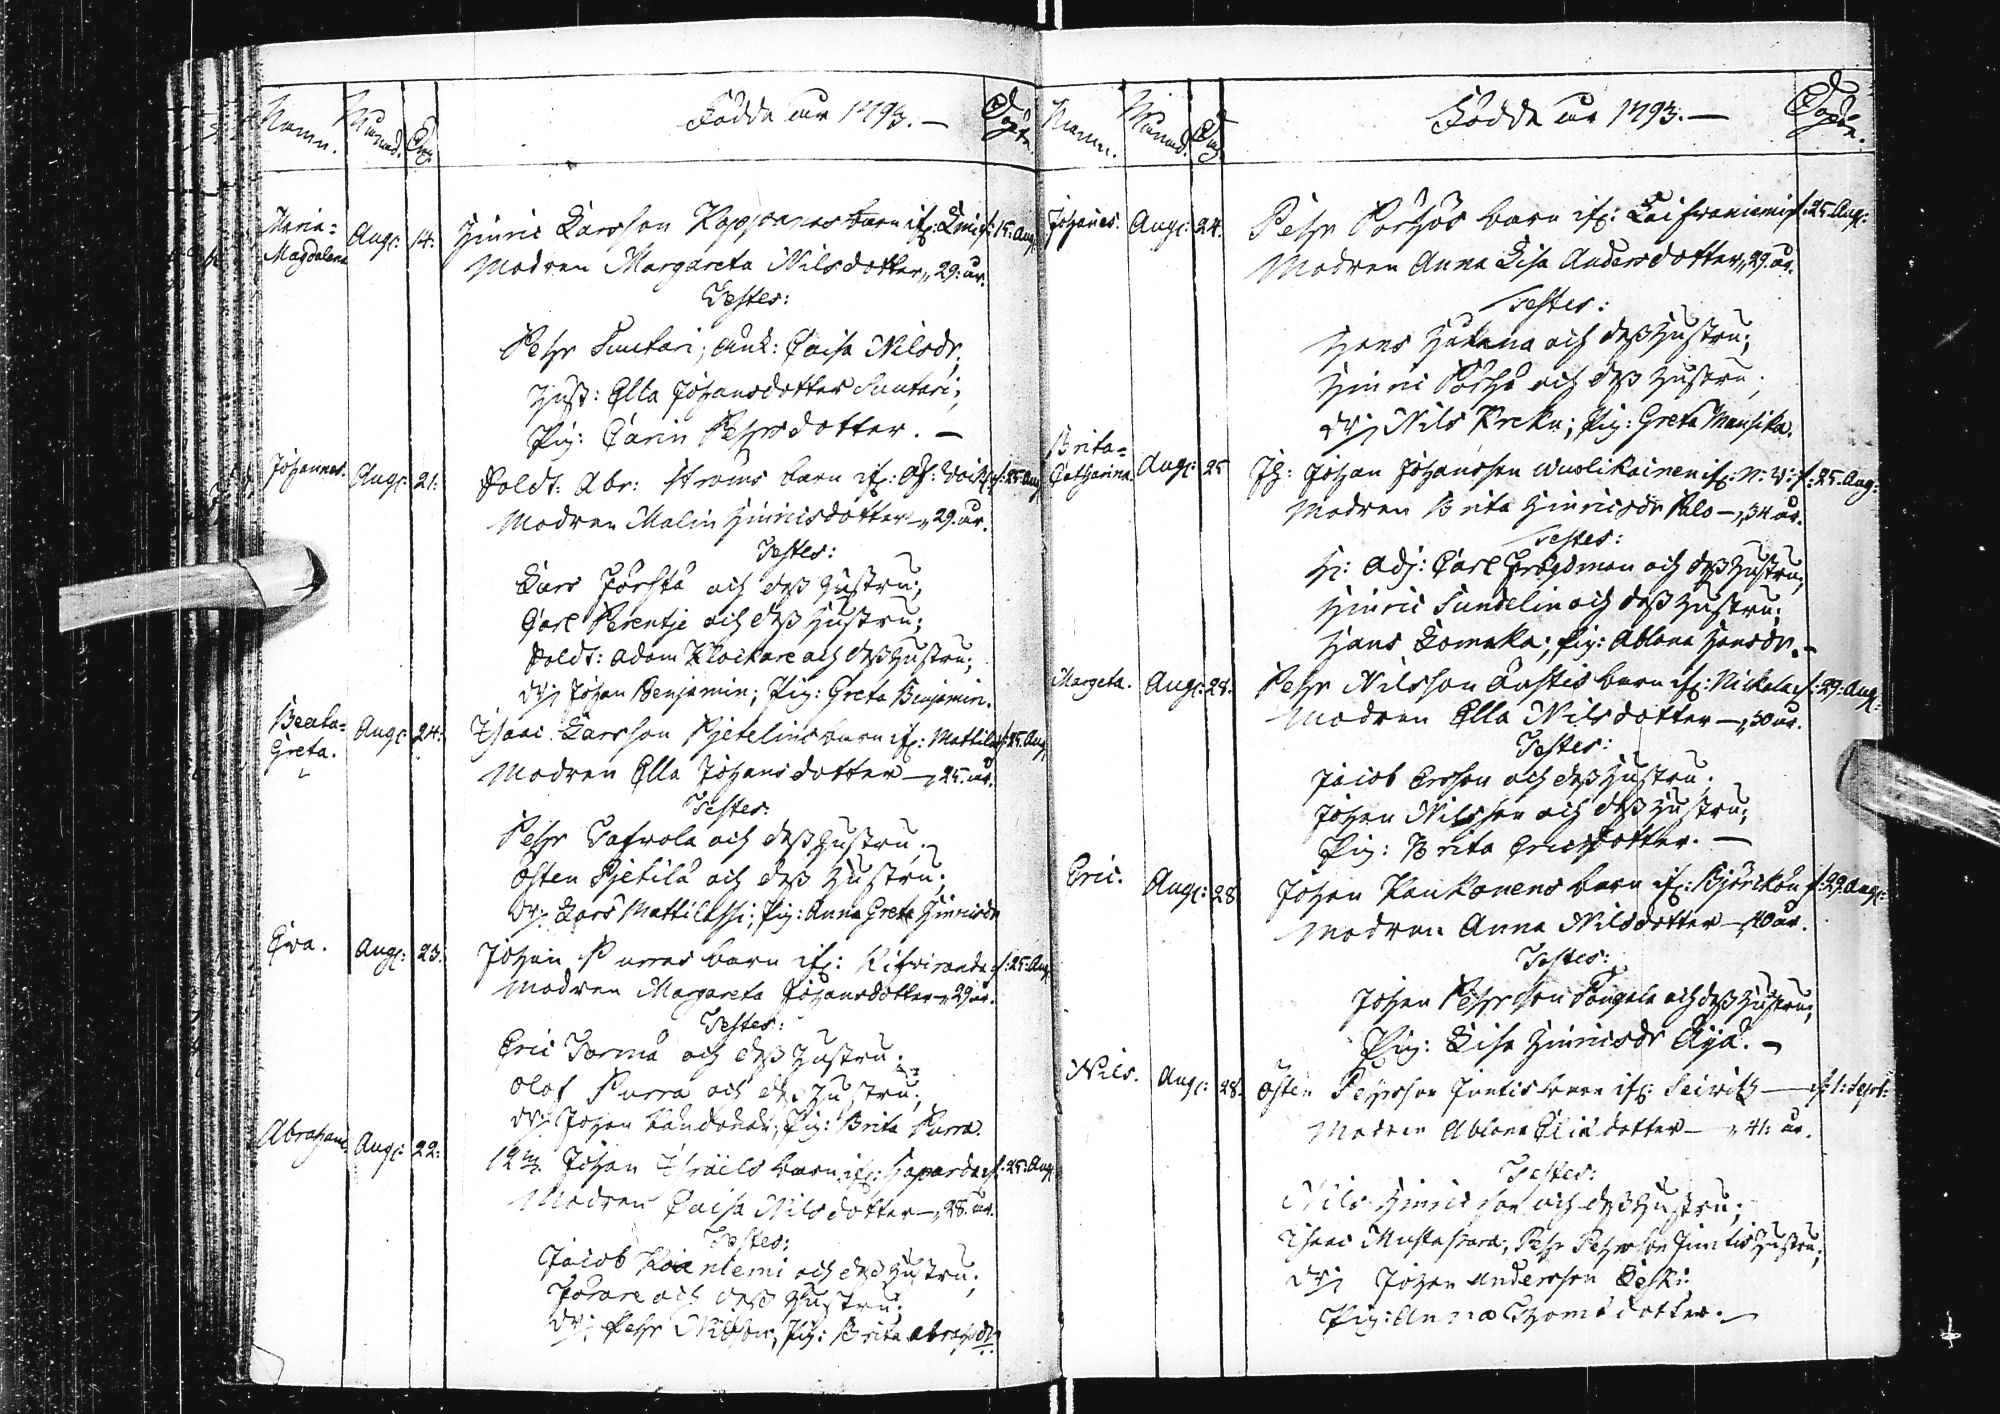 Namn. Månad. Dag. Födde år 1793. — Döpte.
Maria= Augt: 14. Hinric Larsson Koppanas barn if: t: 15. Aug:
Magdalena Modren Margareta Nilsdotter „ 29. år.
Testes:
Pehr Suutari; Enk: Caisa Nilsdr;
Hust: Ella Johansdotter Suutari;
Pig: Carin Pehrsdotter. —
Johannes. Augt: 21: Soldt: Abr: Ströms barn if: t: 25. Aug
Modren Malin Hinricsdotter — „ 29. år.
Testes:
Lars och dess hustru;
Carl Perentje och dess Hustru;
Soldt: Adam Klockare och dess Hustru;
Dr: Johan Benjamin; Pig: Greta Benjamin.
Beata= Augt: 24: Isaac Larsson Pjetelins barn if: Mattila t: 25. Aug
Greta. Modren Ella Johansdotter — „ 25. år.
Testes:
Pehr Tafwola och dess hustru;
Östen Pjetilä och dess Hustru;
Dr: Lars Mattilassi; Pig: Anna Greta Hinricsdr
Eva. Augt: 23. Johan Purras barn if: Kifviranda t: 25. Aug
Modren Margareta Johansdotter „ 29 år.
Testes:
Eric Tormä och dess hustru;
Olof Purra och dess Hustru;
Dr: Johan; Pig: Brita Purra.
Abraham Augt: 22: Johan Israels barn if: Haparanda t: 25. Aug
Modren Caisa Nilsdotter — „ 28. år.
Testes:
Jacob Kaaniemi och dess hustru;
och dess Hustru;
Dr: Pehr Nilsson; Pig: Brita Abrahdr.
Namn. Månad. Dag. Födde år 1793. — Döpte.
Johannes. Augt: 24. Pehr Pörhös barn if: Laifwaniemi t: 25. Aug:
Modren Anna Lisa Andersdotter „ 29. år.
Testes:
Hans och dess Hustru;
Hinric Pörhö och dess Hustru;
Dr: Nils Kreku; Pig: Greta Mansika.
Brita= Augt: 25 Johan Johansson Wuolikainen if: N: V: t: 25. Aug:
Catharina Modren Brita Hinricsdr Palo — „ 34 år.
Testes:
Hr: Adj: Carl Frigdman och dess Hustru;
Hinric Sundelin och dess Hustru;
Hans Lomakka; Pig: Ablona Hansdr. —
Margeta. Augt: 28. Pehr Nilsson Anttis barn if: Nickala t: 29. Aug:
Modren Ella Nilsdotter — „ 30 år.
Testes:
Jacob Ersson och dess Hustru.
Johan Nilsson och dess Hustru;
Pig: Brita Ericsdotter. —
Eric. Augt: 28 Johan Kaukonens barn if: Björkön t: 29. Aug:
Modren Anna Nilsdotter — „ 40 år.
Testes:
Johan Pehrsson och dess Hustru;
Pig: Lisa Hinricsdr Äyä. —
Nils. Augt: 28. Östen Pehrsson Juntis barn if: Seiwits — t: 1: Sept:
Modren Ablona Eliedotter — „ 41: år.
Testes:
Nils Hinricsson och dess Hustru;
Isaac Mustaparta; Pehr Pehrsson Juntis Hustru;
Dr: Johan Andersson
Pig: Anna Thomsdotter. —